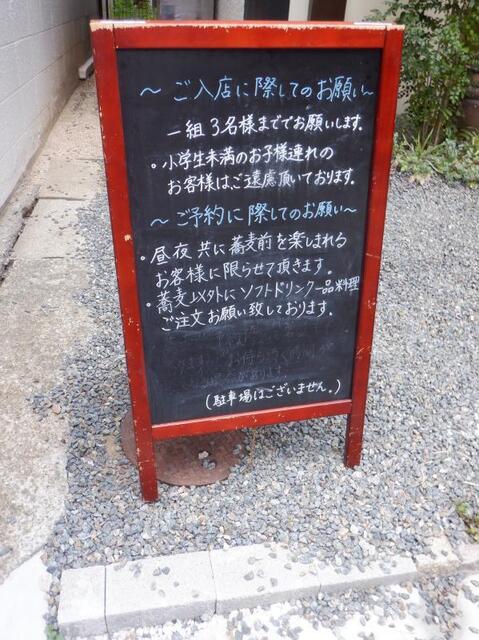 ～ ご入店に際してのお願い～
一組3名様まででお願いします。
・小学生未満のお子様連れの
お客様はご遠慮頂いております。
～ご予約に際してのお願い～
・昼夜共に蕎麦前を楽しまれる
お客様に限らせて頂きます。
・蕎麦以外にソフトドリンク一品料理
ご注文お願い致しております。
(駐車場はございません。)